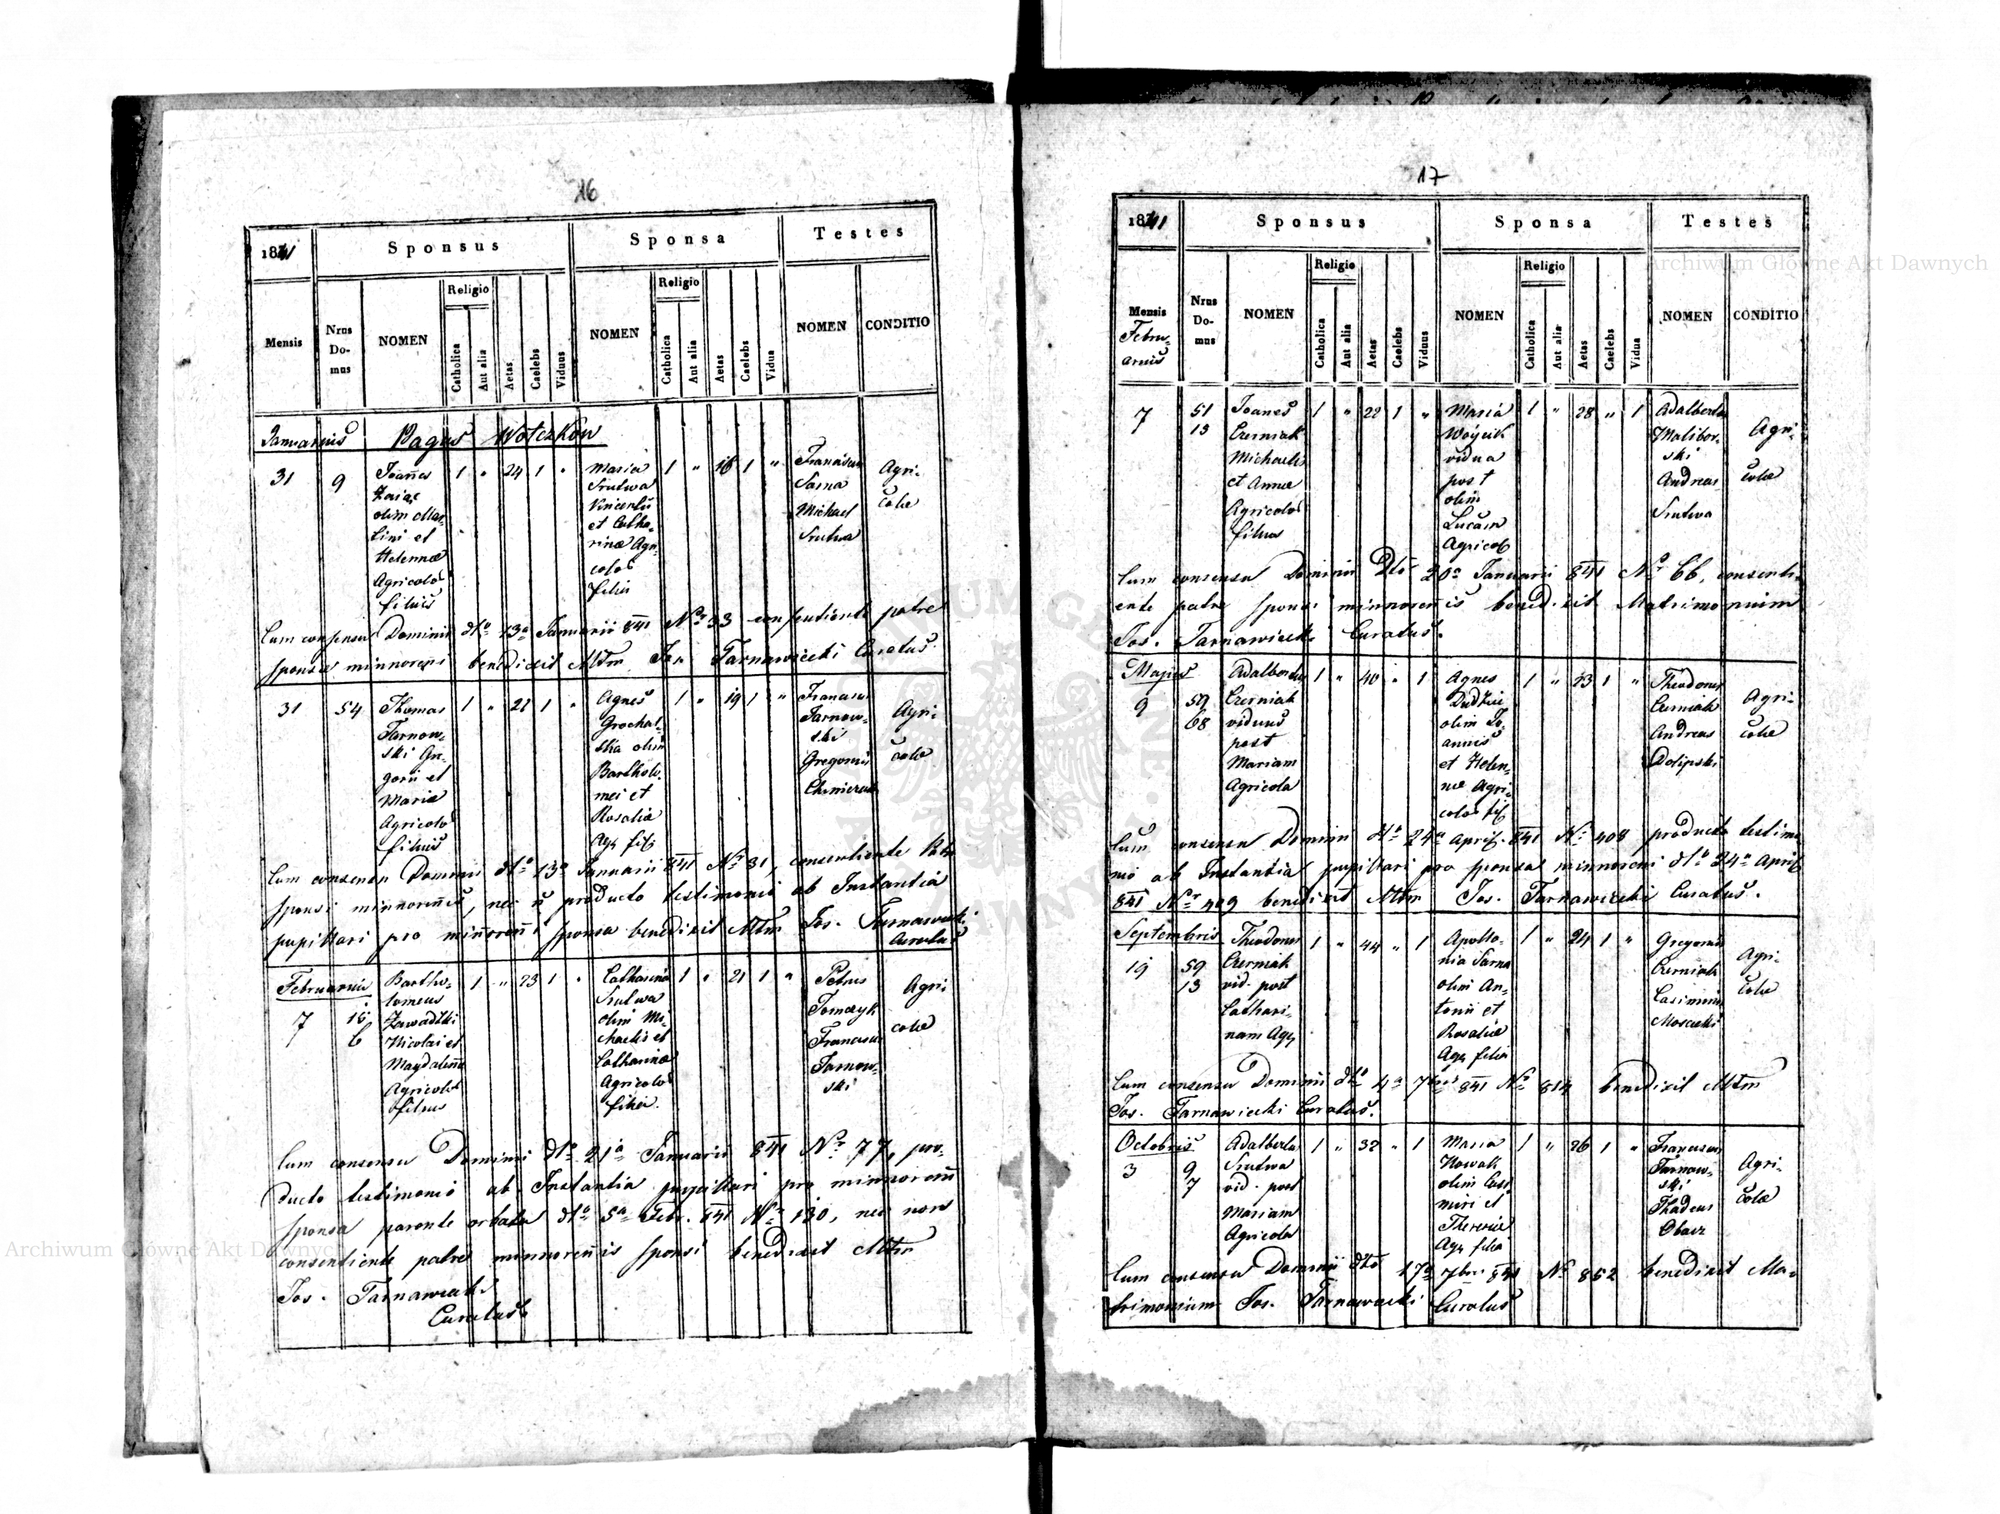 16
1841
Sponsus
Sponsa
Testes
Mensis
Nrus Do- mus
NOMEN
Religio
Catholica
Aut alia
Aetas
Caelebs
Viduus
NOMEN
Religio
Catholica
Aut alia
Aetas
Caelebs
Vidua
NOMEN
CONDITIO
Januarius Pagus Wołczków
31 9
Joannes
Zaiac
olim Mar-
tini et
Helennæ
Agricolar
filius
1 " 24 1 "
Maria
Srutwa
Vincentii
et Catha-
rinæ Agri-
colar
filia
1 " 18 1 "
Franciscus
Sarna
Michael
Srutwa
Agri-
colæ
Cum consensu Dominii dto 13a Januarii 841 Nro 33 consentiente patre
sponsæ minnoreñi benedixit Mtm Jos Tarnawiecki Curatus.
31 54
Thomas
Tarnow-
ski Gre-
gorii et
Mariæ
Agricolar
filius
1 " 21 1 "
Agnes
Grochal-
ska olim
Bartholo-
mei et
Rosaliæ
Agr fil
1 " 19 1 "
Franciscus
Tarnow-
ski
Gregorius
Agri-
colæ
Cum consensu Dominii dto 13a Januarii 841 Nro 31, consentiente Patre
sponsi minnoreñis, nec ñ producto testimonio ab Instantia
pupillari pro miñoreñi sponsa benedixit Mtm Jos. Tarnawiecki
Curatus
Februarius
7 15
6
Bartho-
lomeus
Zawadzki
Nicolai et
Magdalenæ
Agricolar
filius
1 " 23 1 "
Catharina
Srutwa
olim Mi-
chaelis et
Catharinæ
Agricolar
filia.
1 " 21 1 "
Petrus
Tomczyk
Franciscus
Tarnow-
ski
Agri-
colæ
Cum consensu Dominii dto 21a Januarii 841 Nro 77, pro-
ducto testimonio ab Instantia pupillari pro minnoreñi
sponsa parente orbata dto 5a Febr. 841 Nro 130, nec non
consentiente patre minnoreñis sponsi benedixit Mtm
Jos. Tarnawiecki
Curatus
17
1841
Sponsus
Sponsa
Testes
Mensis
Febru-
arius
Nrus Do- mus
NOMEN
Religio
Catholica
Aut alia
Aetas
Caelebs
Viduus
NOMEN
Religio
Catholica
Aut alia
Aetas
Caelebs
Vidua
NOMEN
CONDITIO
7 51
13
Joanes
Czerniak
Michaelis
et Annæ
Agricolar
filius
1 " 22 1 "
Maria
Woycik
vidua
post
olim
Lucam
Agricol
1 " 28 " 1
Adalbertus
Malibor-
ski
Andreas
Srutwa
Agri-
colæ
Cum consensu Dominii Dto 20a Januarii 841 Nro 66, consenti-
ente patre sponsi minnoreñis benedixit Matrimonium
Jos. Tarnawiecki Curatus.
Majus
9 59
68
Adalbertus
Czerniak
viduus
post
Mariam
Agricola
1 " 40 " 1
Agnes
olim Jo-
annis
et Helen-
næ Agri-
colar fil
1 " 23 1 "
Theodorus
Czerniak
Andreas
Dolipski
Agri-
colæ
Cum consensu Dominii dto 24a April. 841 Nro 408 producto testimo-
nio ab Instantia pupillari pro sponsa minnoreni dto 24a April
841 Nro 409 benedixit Mtm Jos. Tarnawiecki Curatus.
Septembris
19 59
13
Theodorus
Czerniak
vid. post
Cathari-
nam Agr
1 " 44 " 1
Apollo-
nia Sarna
olim An-
tonii et
Rosaliæ
Agr filia
1 " 24 1 "
Gregorius
Czerniak
Casimirus
Moscicki
Agri-
colæ
Cum consensu Dominii dto 4a 7bris 841 No 814 benedixit Mtm
Jos. Tarnawiecki Curatus.
Octobris
3 9
7
Adalbertus
Srutwa
vid. post
Mariam
Agricola
1 " 32 " 1
Maria
Nowak
olim Casi
miri et
Theresiæ
Agr filia
1 " 26 1 "
Franciscus
Tarnow-
ski
Thadeus
Agri-
colæ
Cum consensu Dominii dto 17a 7bris 841 No 852 benedixit Ma-
trimonium Jos. Tarnawiecki Curatus
Archiwum Główne Akt Dawnych
Archiwum Główne Akt Dawnych